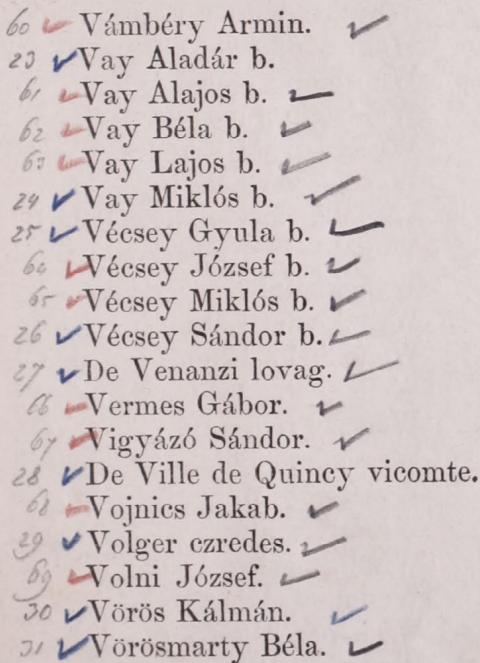 60 Vámbéry Armin.
23 Vay Aladár b.
61 Vay Alajos b.
62 Vay Béla b.
63 Vay Lajos b.
24 Vay Miklós b.
25 Vécsey Gyula b.
64 Vécsey József b.
65 Vécsey Miklós b.
26 Vécsey Sándor b.
27 De Venanzi lovag.
66 Vermes Gábor.
67 Vigyázó Sándor.
28 De Ville de Quincy vicomte.
68 Vojnics Jakab.
29 Volger czredes.
69 Volni József.
30 Vörös Kálmán.
31 Vörösmarty Béla.